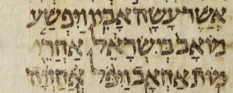 אֲשֶׁר עָשָׂה אָבִיו וַיִּפְשַׁע
מוֹאָב בְּיִשְׂרָאֵל אַחֲרֵי
מוֹת אַחְאָב וַיִּפֹּל אֲחַזְיָה